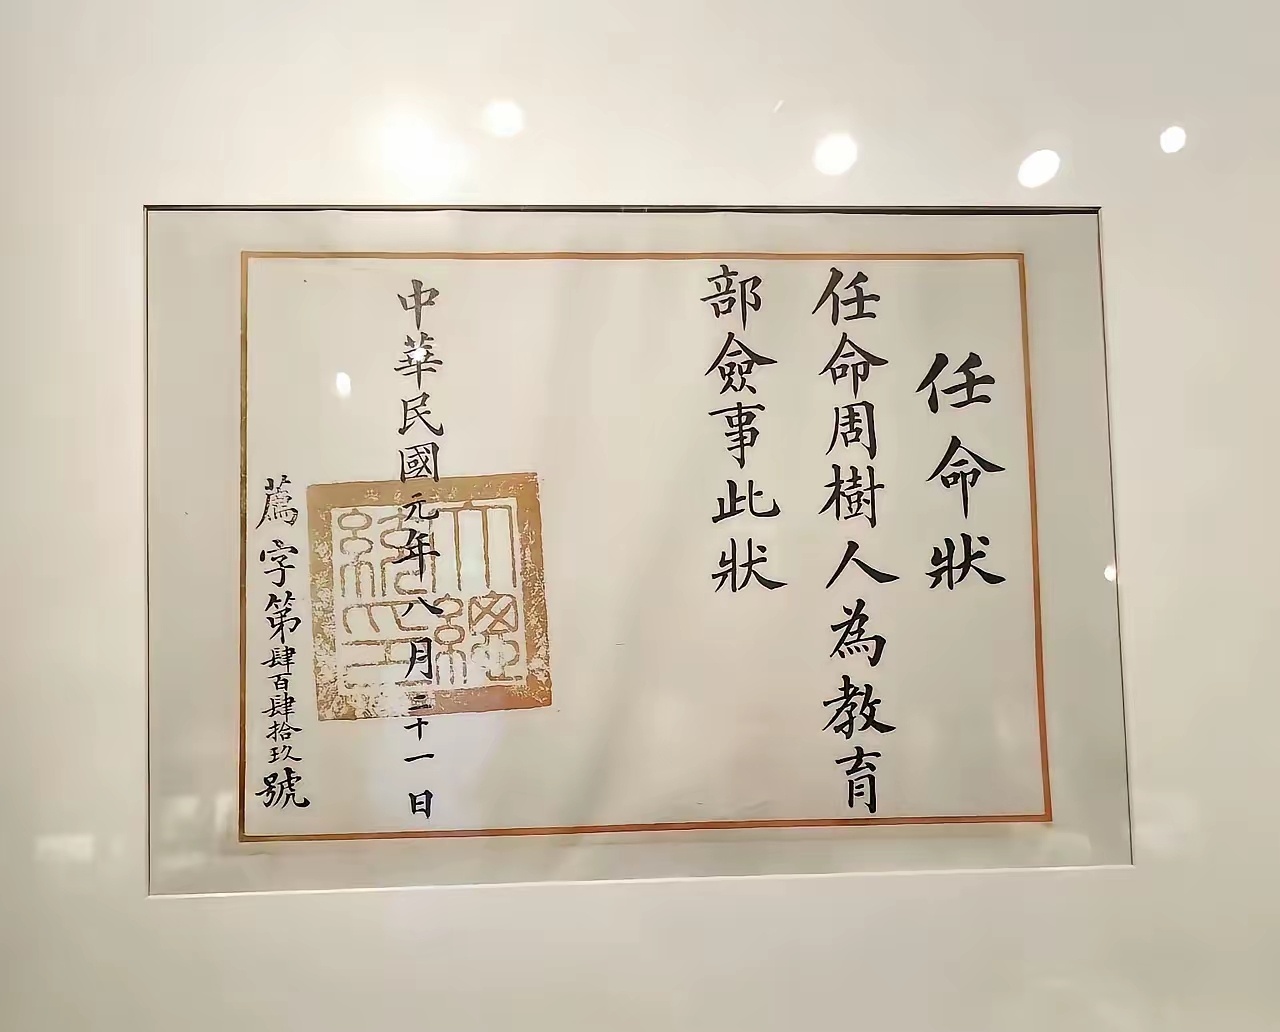 任命狀
任命周樹人為教育
部僉事此狀
中華民國元年八月二十一日
大總
統印
薦字第肆百肆拾玖號